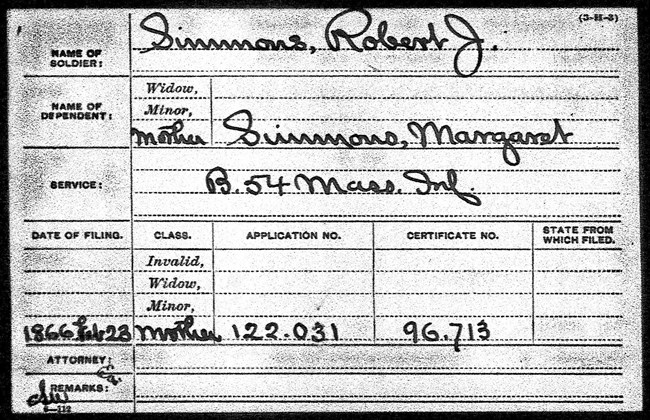 (3-H-3)
NAME OF SOLDIER: Simmons, Robert J.
NAME OF DEPENDENT: Widow,
Minor,
Mother Simmons, Margaret
SERVICE: B. 54 Mass. Inf.
DATE OF FILING. CLASS. APPLICATION NO. CERTIFICATE NO. STATE FROM WHICH FILED.
Invalid,
Widow,
Minor,
1866 Feb 23 Mother 122.031 96.713
ATTORNEY:
REMARKS: